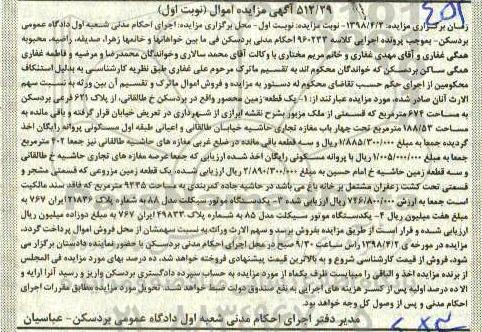 ۵۱۲/۲۹ آگهی مزایده اموال (نوبت اول)
زمان برگزاری مزایده: ۱۳۹۸/۴/۲- نوبت مزایده: نوبت اول- محل برگزاری مزایده: اجرای احکام مدنی شعبه اول دادگاه عمومی
بردسکن- بموجب پرونده اجرایی کلاسه ۹۶۰۲۳۳ اجرای احکام مدنی بردسکن فی ما بین خواهانها و خانمها زهرا، صدیقه، راضیه، محبوبه
همگی غفاری و آقای مهدی غفاری و خانم مریم مختاری با وکالت آقای محمد سالاری وخواندگان محمدرضا و مرضیه و فاطمه غفاری
همگی ساکن بردسکن که خواندگان محکوم اند به تقسیم ماترک مرحوم علی غفاری طبق نظریه کارشناسی به بدلیل استنکاف
محکومین از اجرای حکم حسب تقاضای محکوم له دستور به مزایده و فروش اموال ماترک و تقسیم آن بین ورثه به نسبت سهم
الارث آنان صادر شده، مورد مزایده عبارتند از: ۱- یک قطعه زمین محصور واقع در بردسکن خ طالقانی، از پلاک ۶۲۱ فرعی بردسکن
به مساحت ۶۷۴ مترمربع که قسمتی از ملک مزبور بشرح نقشه ابرازی از شهرداری در تعریض خیابان قرار گرفته و باقی مانده به
مساحت ۱۸۸/۵۳ مترمربع تحت چهار باب مغازه تجاری حاشیه خیابان طالقانی و اعیانی طبقه اول مسکونی پروانه رایگان اخذ
گردیده جمعا به مبلغ ۱/۸۸۵/۳۰۰/۰۰۰ ریال و سه قطعه باقی مانده در ضلع غربی مغازه های حاشیه طالقانی نیز جمعا ۴۰۲ مترمربع
جمعا به مبلغ ۱/۰۰۵/۰۰۰/۰۰۰ ریال با پروانه مسکونی رایگان اخذ شده ارزیابی که جمعا عرصه مغازه های تجاری حاشیه خ طالقانی
و سه قطعه زمین حاشیه خ امام حسین به مبلغ ۲/۸۹۰/۳۰۰/۰۰۰ ریال ارزیابی شده، یک قطعه زمین مزروعی که قسمتی مشجر و
قسمتی تحت کشت زعفران مشتمل بر خانه باغ می باشد در حاشیه جاده کمربندی به مساحت ۹۲۳۵ مترمربع که فاقد سند مالکیت
است جمعا به ارزش ۷۴۶/۸۰۰/۰۰۰ ریال ارزیابی شده ۳- یکدستگاه موتور سیکلت مدل ۸۸ به شماره پلاک ۲۱۸۳۶ ایران ۷۶۷ به
مبلغ هفت میلیون ریال ۴- یکدستگاه موتور سیکلت مدل ۸۵ به شماره پلاک ۴۹۸۳۳ ایران ۷۶۷ به مبلغ دوازده میلیون ریال
ارزیابی شده و قرار است از طریق مزایده بفروش برسد و سهم الارث وراث به نسبت سهمشان از محل فروش اموال پرداخت گردد،
مزایده در مورخه ی ۱۳۹۸/۴/۲ راس ساعت ۹/۳۰ صبح در محل اجرای احکام مدنی بردسکن با حضور نماینده دادستان برگزار می
شود، فروش از قیمت کارشناسی شروع و به بالاترین قیمت پیشنهادی فروخته خواهد شد، ده درصد بهای مورد مزایده فی المجلس
از برنده مزایده اخذ و الباقی را میبایست ظرف یکماه از مورد مزایده به حساب سپرده دادگستری بردسکن واریز و رسید آنرا ارایه و
الا ده درصد اولیه پس از کسر هزینه های اجرایی به نفع صندوق دولت ضبط خواهد شد، تحویل مورد مزایده مطابق مقررات اجرای
احکام مدنی و پس از وصول کل وجه خواهد بود.
مدیر دفتر اجرای احکام مدنی شعبه اول دادگاه عمومی بردسکن- عباسیان